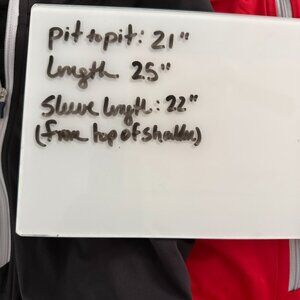 pit to pit: 21"
length 25"
sleeve length: 22"
(from top of shoulder)